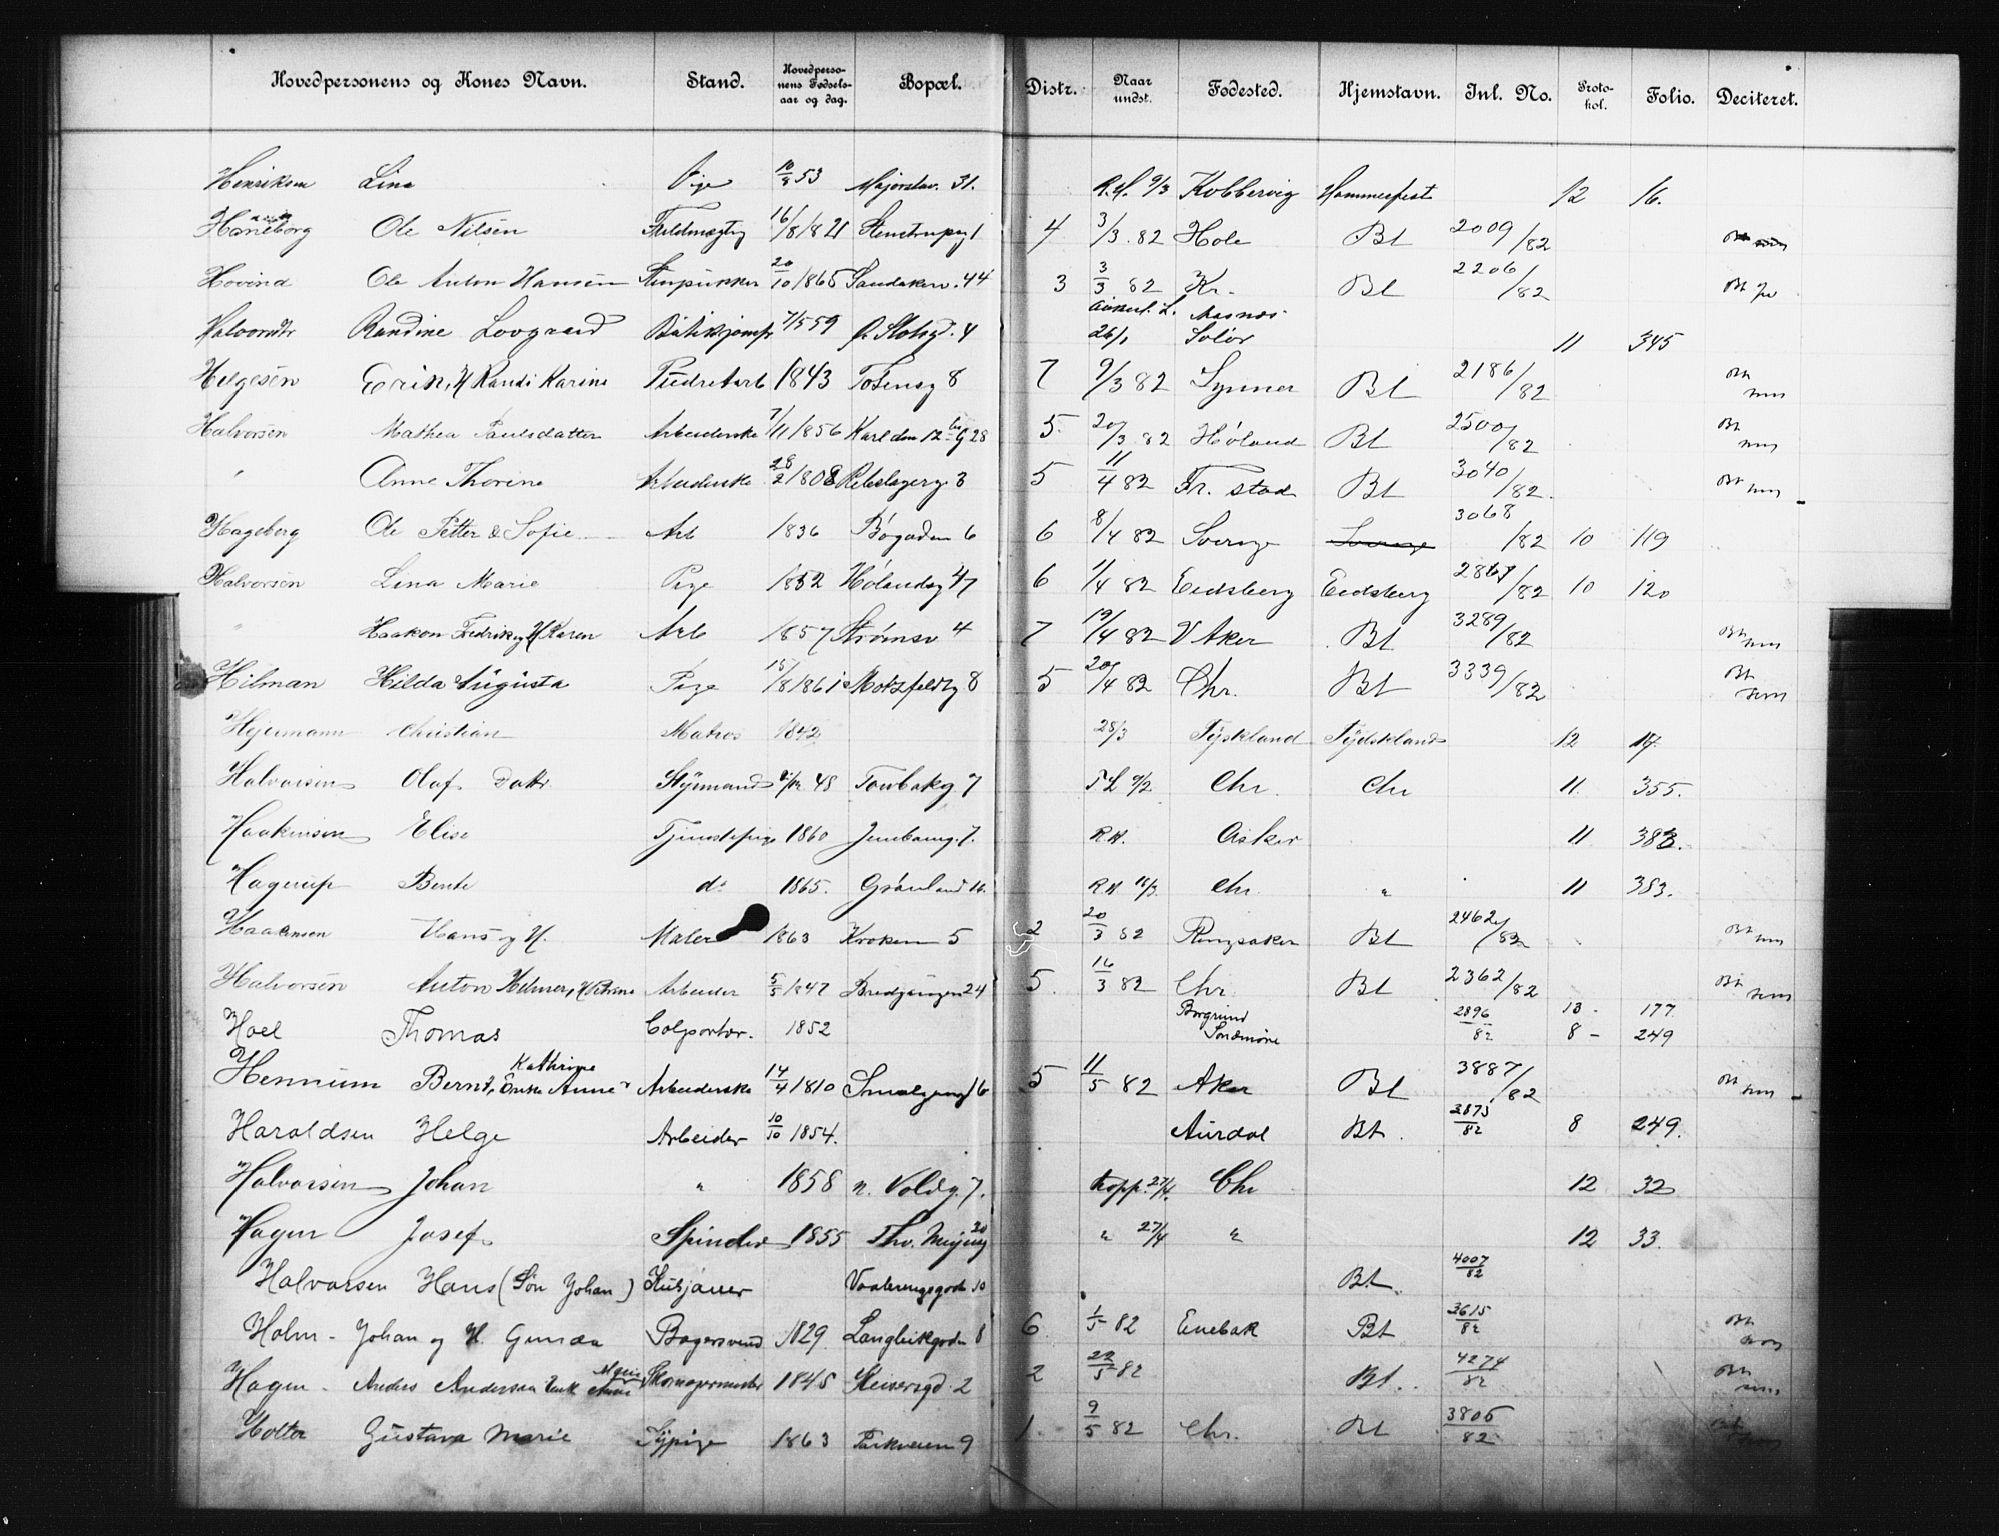 Hovedpersonens og Kones Navn. Stand. Hovedpersonens Fødselsaar og dag. Bopæl. Distr. Naar undst. Fødested. Hjemstavn. Inl. No. Protokol. Folio. Deciteret.
Henriksen Lina Pige 10/8 53 Majorstav. 31. R.H. 9/3 Kobbervig Hammerfest 12 16.
Haneborg Ole Nilsen Fuldmægtig 16/8 1821 Stenstrupg 1 4 3/3. 82 Hole Bt 2009/82 Bt
Hovind Ole Anton Hansen Stenpukker 20/10 1865 Sandakerv. 44 3 3/3 82 Kr. Bt 2206/82 Bt
Halvorsdtr Randine Lovgaard Butikjomfr 7/5 59 Ø. Slotsgd. 4 26/1 Aasnes Solør 11 345
Helgesen Erik, H Randi Karine Pudretarb 1843 Totensg 8 7 9/3 82 Lynner Bt 2186/82 Bt
Halvorsen Mathea Paulsdatter Arbeiderske 7/11 1856 Karl den 12 tes G 28 5. 20/3 82 Høland Bt 2500/82 Bt
" Anne Thorine Arbeiderske 28/2 1808 Rebslagerg 3 5 11/4 82 Fr. stad Bt 3040/82. Bt
Hageberg Ole Petter & Sofie Arb 1836 Bøgaden 6 6 8/4 82 Sverge Sverge 3068/82 10 119
Halvorsen Lina Marie Pige 1852 Hølandsg 47 6 1/4 82 Eidsberg Eidsberg 2867/82 10 120
" Haakon Fredrik og H Karen Arb 1857 Strømsv 4 7 19/4 82 V Aker Bt 3289/82 Bt
Hilman Hilda Augusta Pige 15/8 1861 Motzfeldtg 8 5 20/4 82 Chr. Bt 3339/82 Bt
Hejermann Christian Matros 1842 28/3 Tyskland Tydskland 12 17.
Halvorsen Olaf Dakt. Styrmand 48 Tombakg 7 9/2 Chr. Chr 11 355.
Haakensen Elise Tjenestepige 1860 Jernbaneg. 7. R H. Asker 11 383.
Hagerup Bente do 1865. Grønland 16. R H. 16/3. Chr. " 11 383.
Haakensen Hans og H. Maler 1863 Kroken 5 2 20/3 82 Ringsaker Bt 2462/82 Bt
Halvorsen Anton Hilmer, H Petrine Arbeider 5/5 1847 Bredgangen 24 5. 16/3 82 Chr. Bt 2362/82 Bt
Hoel Thomas Colportør. 1852 Borgund Søndmøre 2896/82 13 - 177. 8 - 249
Hennum Bernt, Enke Anne Kathrine Arbeiderske 14/4 1810 Smalgang 16 5 11/5 82 Aker Bt 3887/82 Bt
Haraldsen Helge Arbeider 10/10 1854. Aurdal Bt. 3875/82 8 249.
Halvorsen Johan " 1858 n. Voldg. 7. Kopp. 27/4. Chr 12 32
Hagen Josef. Spinder 1855 Thv. Meyersg 30 " 27/4 " 12 33.
Halvorsen Hans (Søn Johan) Husjauer Vaalerengsgade 10 Bt. 4007/82
Holm - Johan og H. Gunda Bagersvend 1829. Langleikgaden 8 6. 1/5 82 Enebak Bt 3615/82 Bt
Hagen - Anders Andersen Enk Anne Skomagermester 1845 Skiversgd. 2 2 22/5 82 Bt. 4274/82 Bt
Holter Gustava Marie Typige 1863 Parkveien 9 1. 9/5 82 Chr. Bt 3805/82